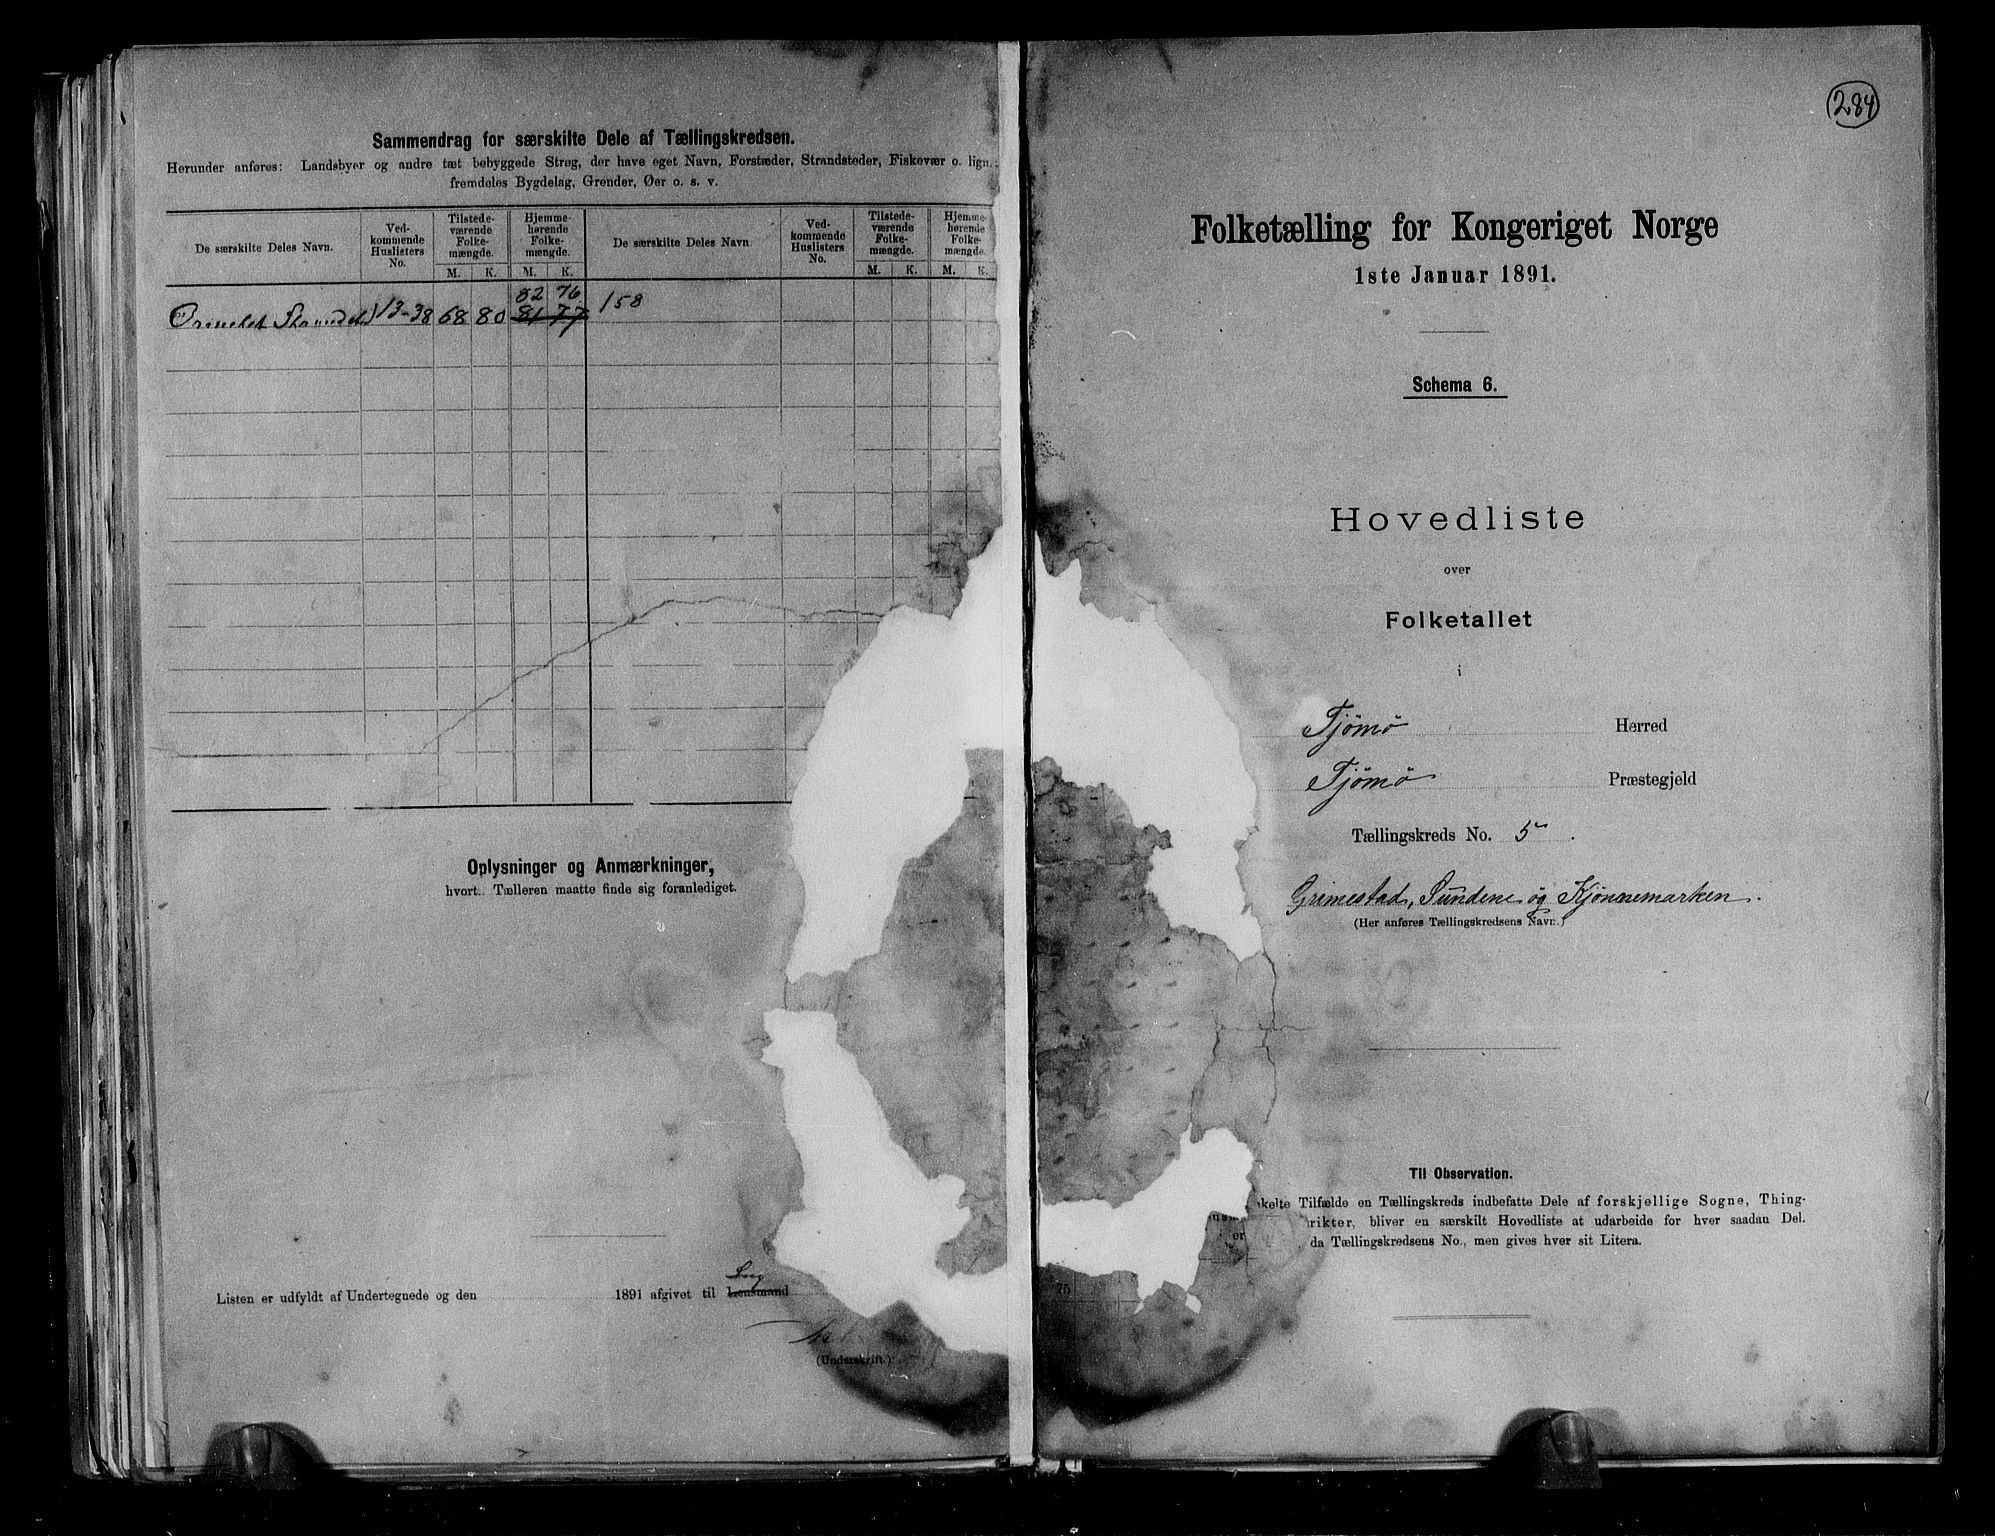 Sammendrag for særskilte Dele af Tællingskredsen.
Herunder anføres: Landsbyer og andre tæt bebyggede Strøg, der have eget Navn, Forstæder, Strandsteder, Fiskevær o. lign.
fremdeles Bygdelag, Grender, Øer o. s. v.
De særskilte Deles Navn.
Ved-
kommende
Huslisters
No.
Tilstede-
værende
Folke-
mængde.
M. K.
Hjemme-
hørende
Folke-
mængde.
M. K.
De særskilte Deles Navn.
Ved-
kommende
Huslisters
No.
Tilstede-
værende
Folke-
mængde.
M. K.
Hjemme-
hørende
Folke-
mængde.
M. K.
82 76
13-38 68 80 81 77 158
Oplysninger og Anmærkninger,
hvort.. Tælleren maatte finde sig foranlediget.
Listen er udfyldt af Undertegnede og den 1891 afgivet til Lensmand
(Underskrift.)
284
Folketælling for Kongeriget Norge
1ste Januar 1891.
Schema 6.
Hovedliste
over
Folketallet
i
Tjömö Herred
Tjömö Præstegjeld
Tællingskreds No. 5.
Grimestad, Sundene og Kjönnemarken.
(Her anføres Tællingskredsens Navn.)
Til Observation.
kelte Tilfælde en Tællingskreds indbefatte Dele af forskjellige Sogne, Thing-
rikter, bliver en særskilt Hovedliste at udarbeide for hver saadan Del.
da Tællingskredsens No., men gives hver sit Litera.
75